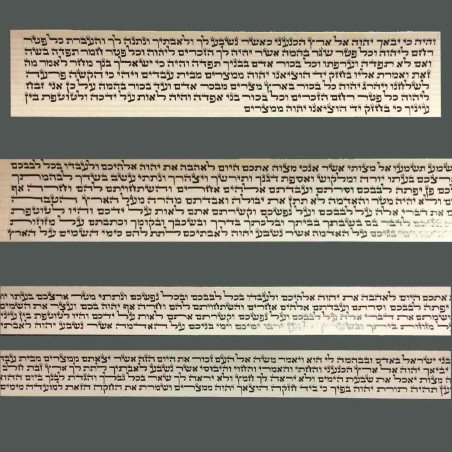 והיה כי יבאך יהוה אל ארץ הכנעני כאשר נשבע לך ולאבתיך ונתנה לך והעברת כל פטר
רחם ליהוה וכל פטר שגר בהמה אשר יהיה לך הזכרים ליהוה וכל פטר חמר תפדה בשה
ואם לא תפדה וערפתו וכל בכור אדם בבניך תפדה והיה כי ישאלך בנך מחר לאמר מה
זאת ואמרת אליו בחזק יד הוציאנו יהוה ממצרים מבית עבדים ויהי כי הקשה פרעה
לשלחנו ויהרג יהוה כל בכור בארץ מצרים מבכר אדם ועד בכור בהמה על כן אני זבח
ליהוה כל פטר רחם הזכרים וכל בכור בני אפדה והיה לאות על ידכה ולטוטפת בין
עיניך כי בחזק יד הוציאנו יהוה ממצרים
תשמעו אל מצותי אשר אנכי מצוה אתכם היום לאהבה את יהוה אלהיכם ולעבדו בכל לבבכם
בעתו יורה ומלקוש ואספת דגנך ותירשך ויצהרך ונתתי עשב בשדך לבהמתך
פן יפתה לבבכם וסרתם ועבדתם אלהים אחרים והשתחויתם להם וחרה אף
ולא יהיה מטר והאדמה לא תתן את יבולה ואבדתם מהרה מעל הארץ הטבה
את דברי אלה על לבבכם ועל נפשכם וקשרתם אתם לאות על ידכם והיו לטוטפת
בם בשבתך בביתך ובלכתך בדרך ובשכבך ובקומך וכתבתם על מזוזות
בניכם על האדמה אשר נשבע יהוה לאבתיכם לתת להם כימי השמים על הארץ
אתכם היום לאהבה את יהוה אלהיכם ולעבדו בכל לבבכם ובכל נפשכם ונתתי מטר ארצכם בעתו
יפתה לבבכם וסרתם ועבדתם אלהים אחרים והשתחויתם להם וחרה אף יהוה בכם ועצר את השמים
ושמתם את דברי אלה על לבבכם ועל נפשכם וקשרתם אתם לאות על ידכם והיו לטוטפת בין
על מזוזות ביתך ובשעריך למען ירבו ימיכם וימי בניכם על האדמה אשר נשבע יהוה לאבתיכם
בני ישראל באדם ובבהמה לי הוא ויאמר משה אל העם זכור את היום הזה אשר יצאתם ממצרים מבית
יביאך יהוה אל ארץ הכנעני והחתי והאמרי והחוי והיבוסי אשר נשבע לאבתיך לתת לך ארץ זבת חלב
מצות יאכל את שבעת הימים ולא יראה לך חמץ ולא יראה לך שאר בכל גבלך והגדת לבנך ביום ההוא
תהיה תורת יהוה בפיך כי ביד חזקה הוצאך יהוה ממצרים ושמרת את החקה הזאת למועדה מימים